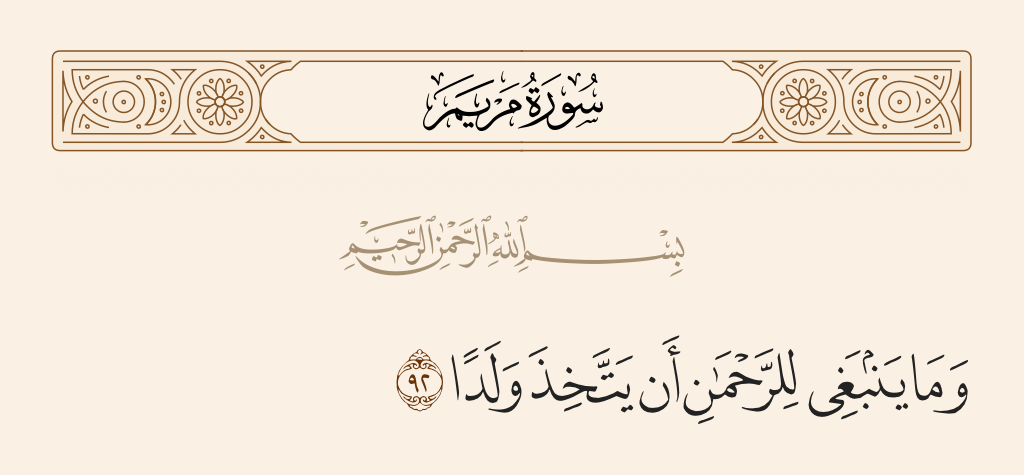 سُورَةُ مَرْيَمَ
بِسْمِ ٱللَّهِ ٱلرَّحْمَٰنِ ٱلرَّحِيمِ
وَمَا يَنۢبَغِى لِلرَّحْمَٰنِ أَن يَتَّخِذَ وَلَدًا ٩٢